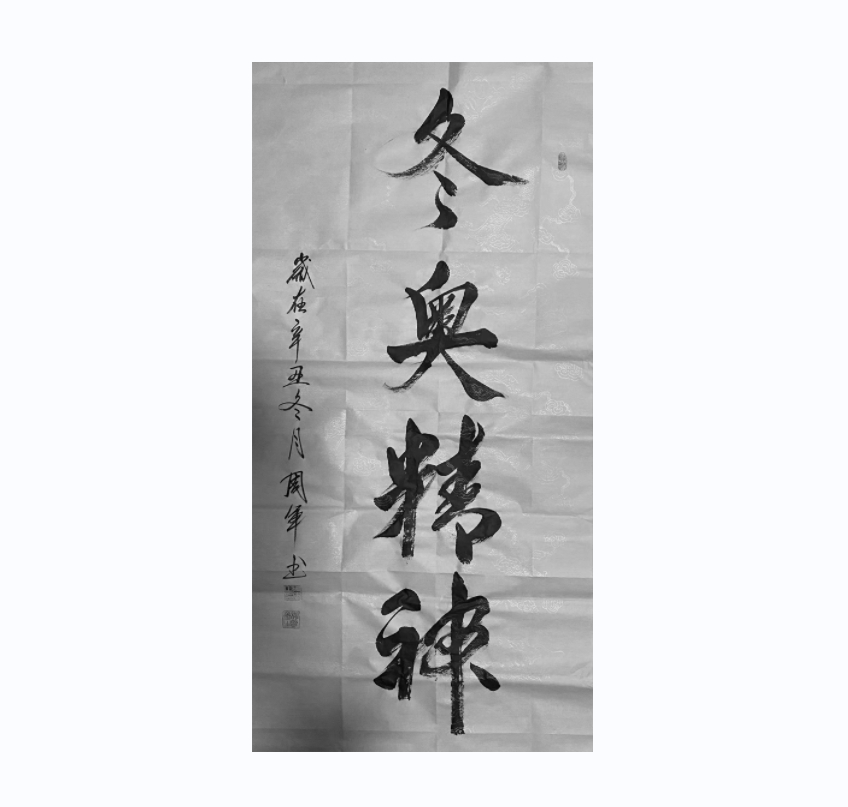 冬奥精神
歲在辛丑冬月周军书